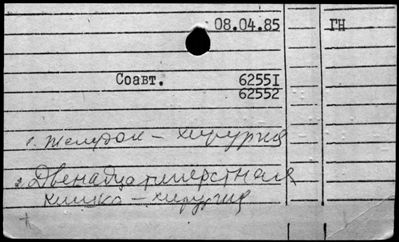 08.04.85 ГН
Соавт. 62551
62552
1. Желудок – хирургия
2. Двенадцатиперстная
кишка – хирургия